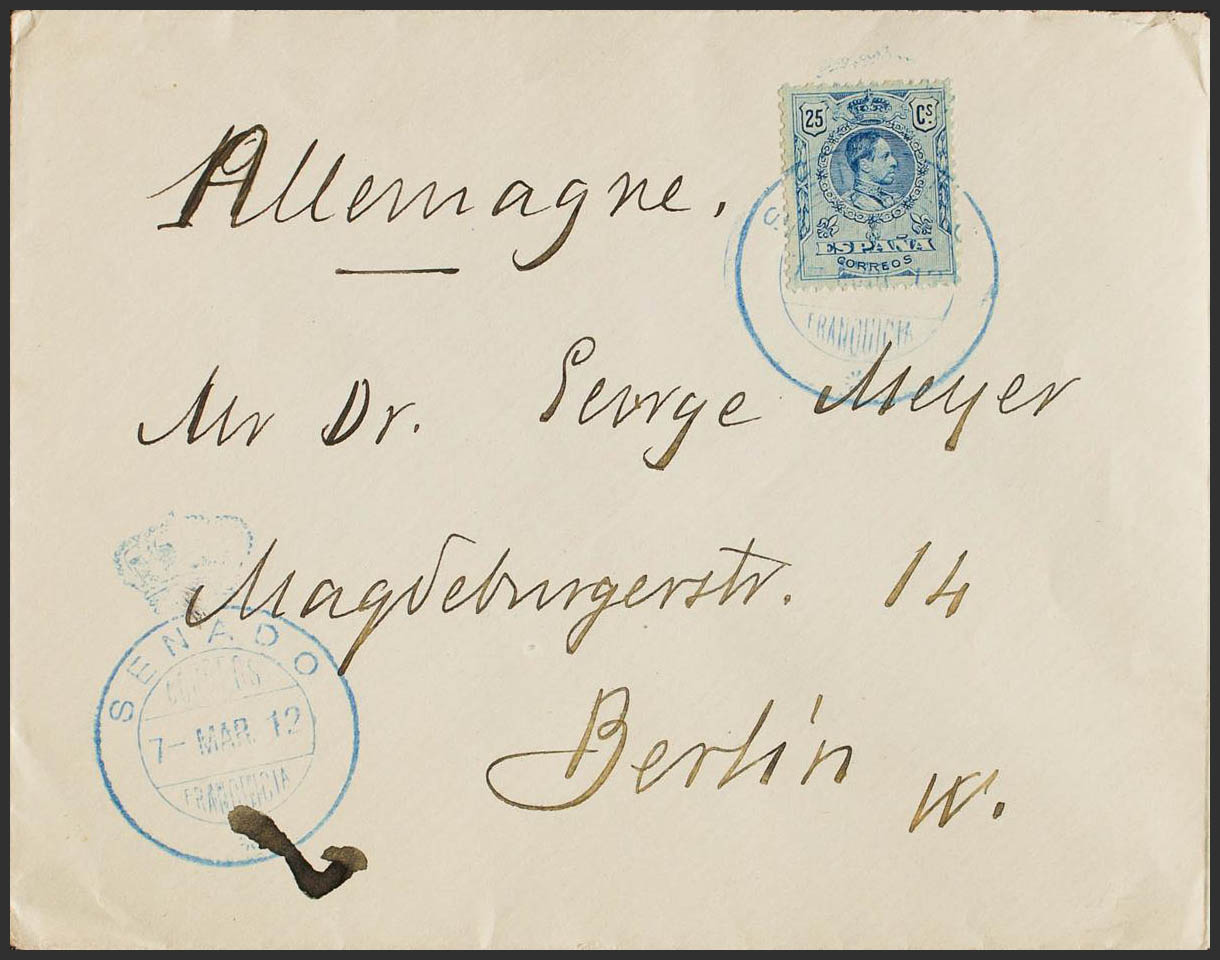 25 Cs.
ESPAÑA
CORREOS
FRANQUICIA
Allemagne.
Mr Dr. George Meyer
Magdeburgerstr. 14
Berlin W.
SENADO
CORREOS
7- MAR. 12
FRANQUICIA